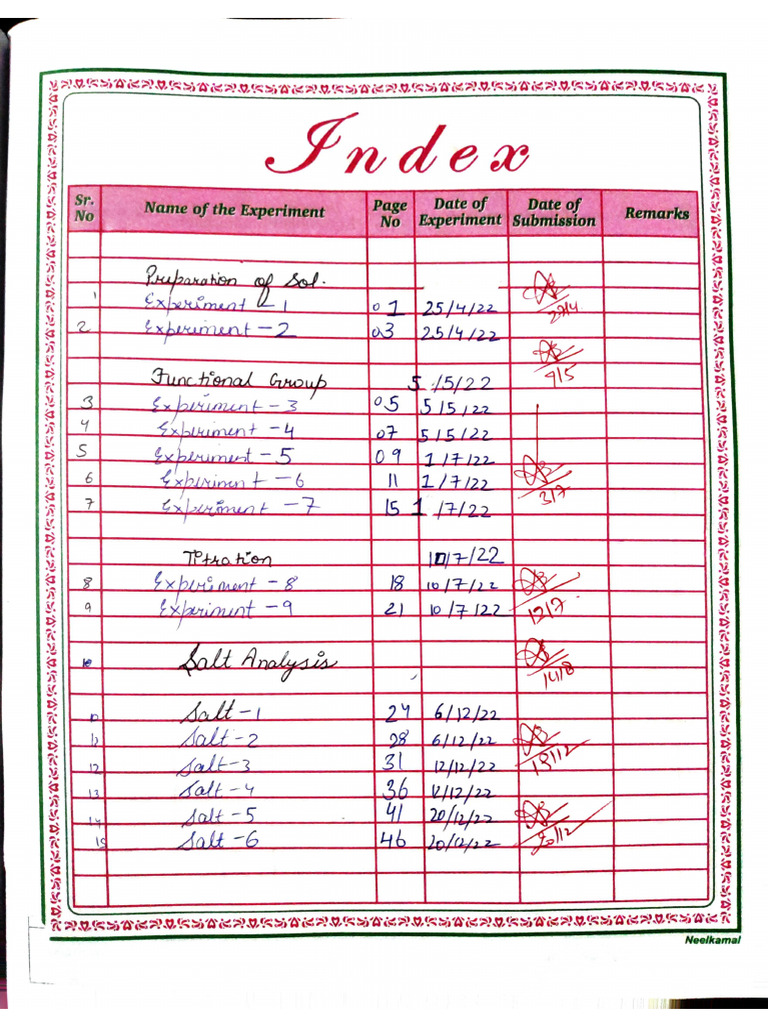 Index
Sr. No Name of the Experiment Page No Date of Experiment Date of Submission Remarks
Preparation of Sol.
1 Experiment - 1 01 25/4/22 22/4
2 Experiment - 2 03 25/4/22
Functional Group 5/5/22 9/5
3 Experiment - 3 05 5/5/22
4 Experiment - 4 07 5/5/22
5 Experiment - 5 09 1/7/22
6 Experiment - 6 11 1/7/22 3/7
7 Experiment - 7 15 1/7/22
Titration 10/7/22
8 Experiment - 8 18 10/7/22
9 Experiment - 9 21 10/7/22 12/7
10 Salt Analysis 14/8
10 Salt - 1 24 6/12/22
11 Salt - 2 28 6/12/22
12 Salt - 3 31 12/12/22 13/12
13 Salt - 4 36 12/12/22
14 Salt - 5 41 20/12/22
15 Salt - 6 46 20/12/22 20/12
Neelkamal